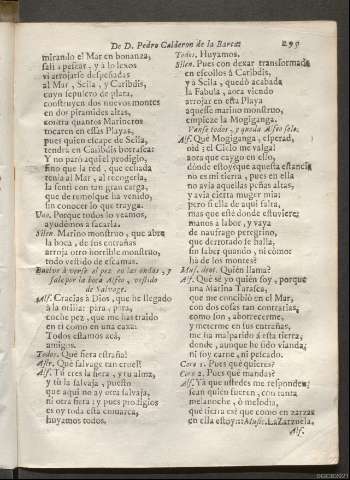 De D. Pedro Calderon de la Barca. 299
mirando el Mar en bonanza,
salì a pescar, y à lo lexos
vi arrojarse despeñadas
al Mar, Scila, y Caribdis,
cuyo sepulcro de plata,
construyen dos nuevos montes
en dos piramides altas,
contra quantos Marineros
tocaren en estas Playas,
pues quien escape de Scila,
tendrà en Caribdis borrasca:
Y no parò aqui el prodigio,
sino que la red, que echada
tenia al Mar, al recogerla,
la sentì con tan gran carga,
que de remolque ha venido,
sin conocer lo que trayga.
Uno. Porque todos lo veamos,
ayudèmos a sacarla.
Silen. Marino monstruo, que abre
la boca, de sus entrañas
arroja otro horrible monstruo,
todo vestido de escamas.
Buelve à verse el pez en las ondas, y
sale por la boca Alfeo, vestido
de Salvage.
Alf. Gracias à Dios, que he llegado
à la orilla: para, para,
coche pez, que me has traido
en ti como en una caxa:
Todos estamos acà,
amigos.
Todos. Què fiera estraña!
Astr. Què salvage tan cruel!
Alf. Tù eres la fiera, y tu alma,
y tù la salvaja, puesto
que aqui no ay otra salvaja,
ni otra fiera; y pues prodigios
es oy toda esta comarca,
huyamos todos.
Todos. Huyamos.
Silen. Pues con dexar transformada
en escollos à Caribdis,
y à Scila, quedò acabada
la Fabula, aora viendo
arrojar en esta Playa
aqueste marino monstruo,
empieze la Mogiganga.
Vanse todos, y queda Alfeo solo.
Alf. Què Mogiganga, esperad,
oid; el Cielo me valga!
aora que caygo en ello,
dònde estoy? que aquesta estancia
no es mi tierra, pues en ella
no avia aquellas peñas altas,
y avia cierta muger mia;
pero si ella de aqui falta,
mas que estè donde estuviere;
manos à labor, y vaya
de naufrago peregrino,
que derrotado se halla,
sin saber quando, ni còmo:
ha de los montes?
Mus. dent. Quièn llama?
Alf. Què sè yo quièn soy, porque
una Marina Tarasca,
que me concibiò en el Mar,
con dos cosas tan contrarias,
como son, aborrecerme,
y meterme en sus entrañas,
me ha malparido à esta tierra,
donde, aunque he sido vianda,
ni soy carne, ni pescado.
Coro 1. Pues què quieres?
Coro 2. Pues què mandas?
Alf. Yà que ustedes me responden,
sean quien fueren, con tanta
melanoche, ò melodia,
què tierra es? que como en zarzas
en ella estoy:: Music. La Zarzuela.
Alf.